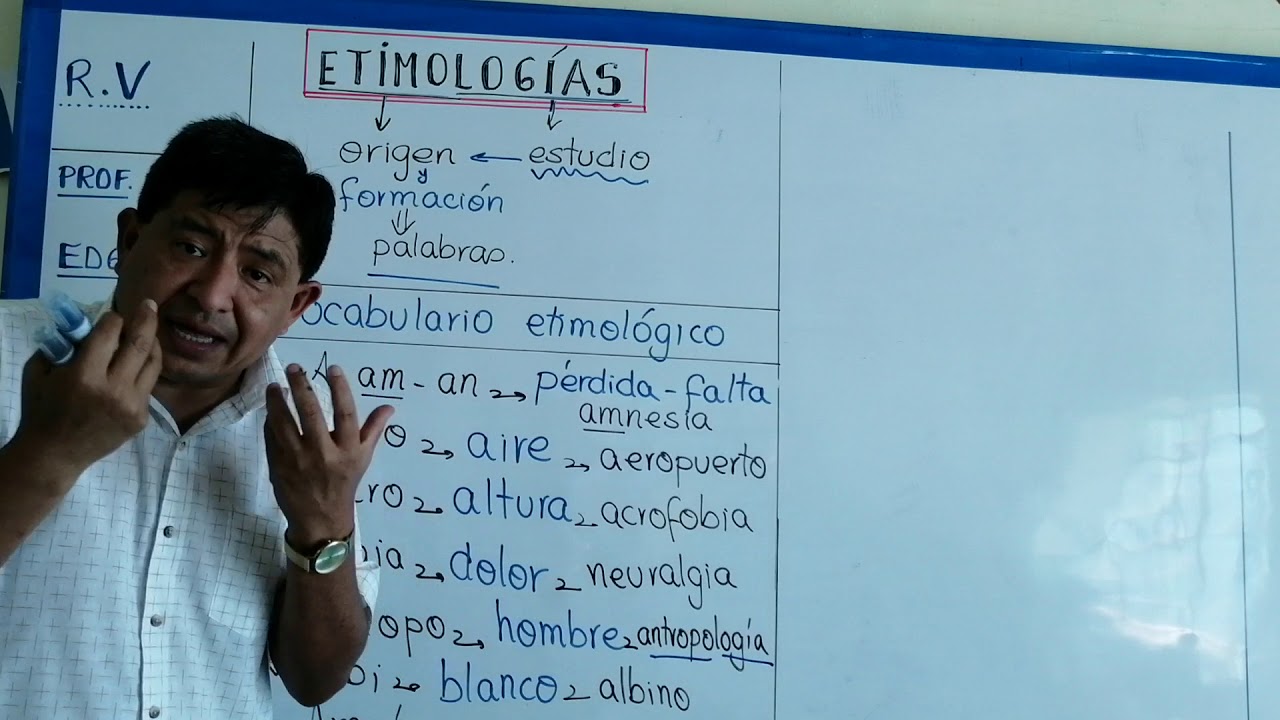 R.V
ETIMOLOGÍAS
origen ← estudio
y
formación
palabras.
PROF.
etimológico
A am - an → pérdida - falta
amnesia
aire → aeropuerto
altura → acrofobia
dolor → neuralgia
hombre → antropología
blanco → albino